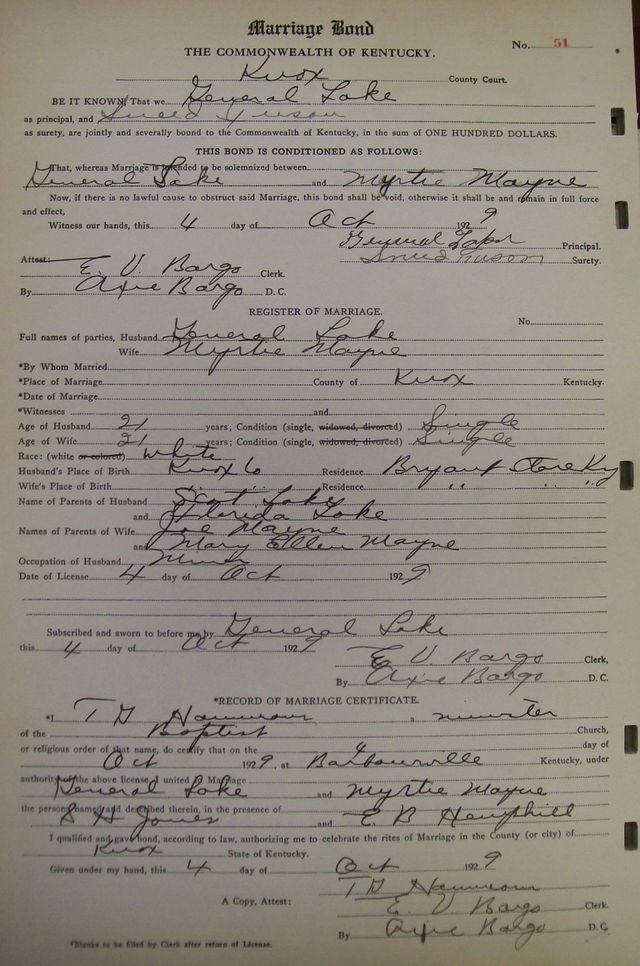 Marriage Bond
THE COMMONWEALTH OF KENTUCKY.
No. 51
Knox County Court.
BE IT KNOWN, That we General Lake
as principal, and
as surety, are jointly and severally bound to the Commonwealth of Kentucky, in the sum of ONE HUNDRED DOLLARS.
THIS BOND IS CONDITIONED AS FOLLOWS:
That, whereas Marriage is intended to be solemnized between
General Lake and Myrtie Mayne
Now, if there is no lawful cause to obstruct said Marriage, this bond shall be void, otherwise it shall be and remain in full force
and effect,
Witness our hands, this 4 day of Oct 1929
General Principal.
Attest: Surety.
E. V. Bargo Clerk.
By Axie Bargo D. C.
REGISTER OF MARRIAGE.
No.
Full names of parties, Husband General Lake
Wife Myrtie Mayne
*By Whom Married
*Place of Marriage County of Knox Kentucky.
*Date of Marriage
*Witnesses and
Age of Husband 21 years; Condition (single, widowed, divorced) Single
Age of Wife 21 years; Condition (single, widowed, divorced) Single
Race: (white or colored) White
Husband's Place of Birth Knox Co Residence Bryant Store Ky
Wife's Place of Birth " " Residence " " "
Name of Parents of Husband Scot Lake
and Florida Lake
Names of Parents of Wife Joe Mayne
and Mary Ellen Mayne
Occupation of Husband Miner
Date of License 4 day of Oct 1929
Subscribed and sworn to before me by General Lake
this 4 day of Oct 1929
E. V. Bargo Clerk,
By Axie Bargo D. C.
*RECORD OF MARRIAGE CERTIFICATE.
*I T G a minister
of the Baptist Church,
or religious order of that name, do certify that on the 4 day of
Oct 1929, at Barbourville Kentucky, under
authority of the above license, I united in Marriage
General Lake and Myrtie Mayne
the persons named and described therein, in the presence of
S H Jones and E B Hemphill
I qualified and gave bond, according to law, authorizing me to celebrate the rites of Marriage in the County (or city) of
Knox State of Kentucky.
Given under my hand, this 4 day of Oct 1929
T G
A Copy, Attest: E. V. Bargo Clerk.
By Axie Bargo D. C.
*Blanks to be filled by Clerk after return of License.